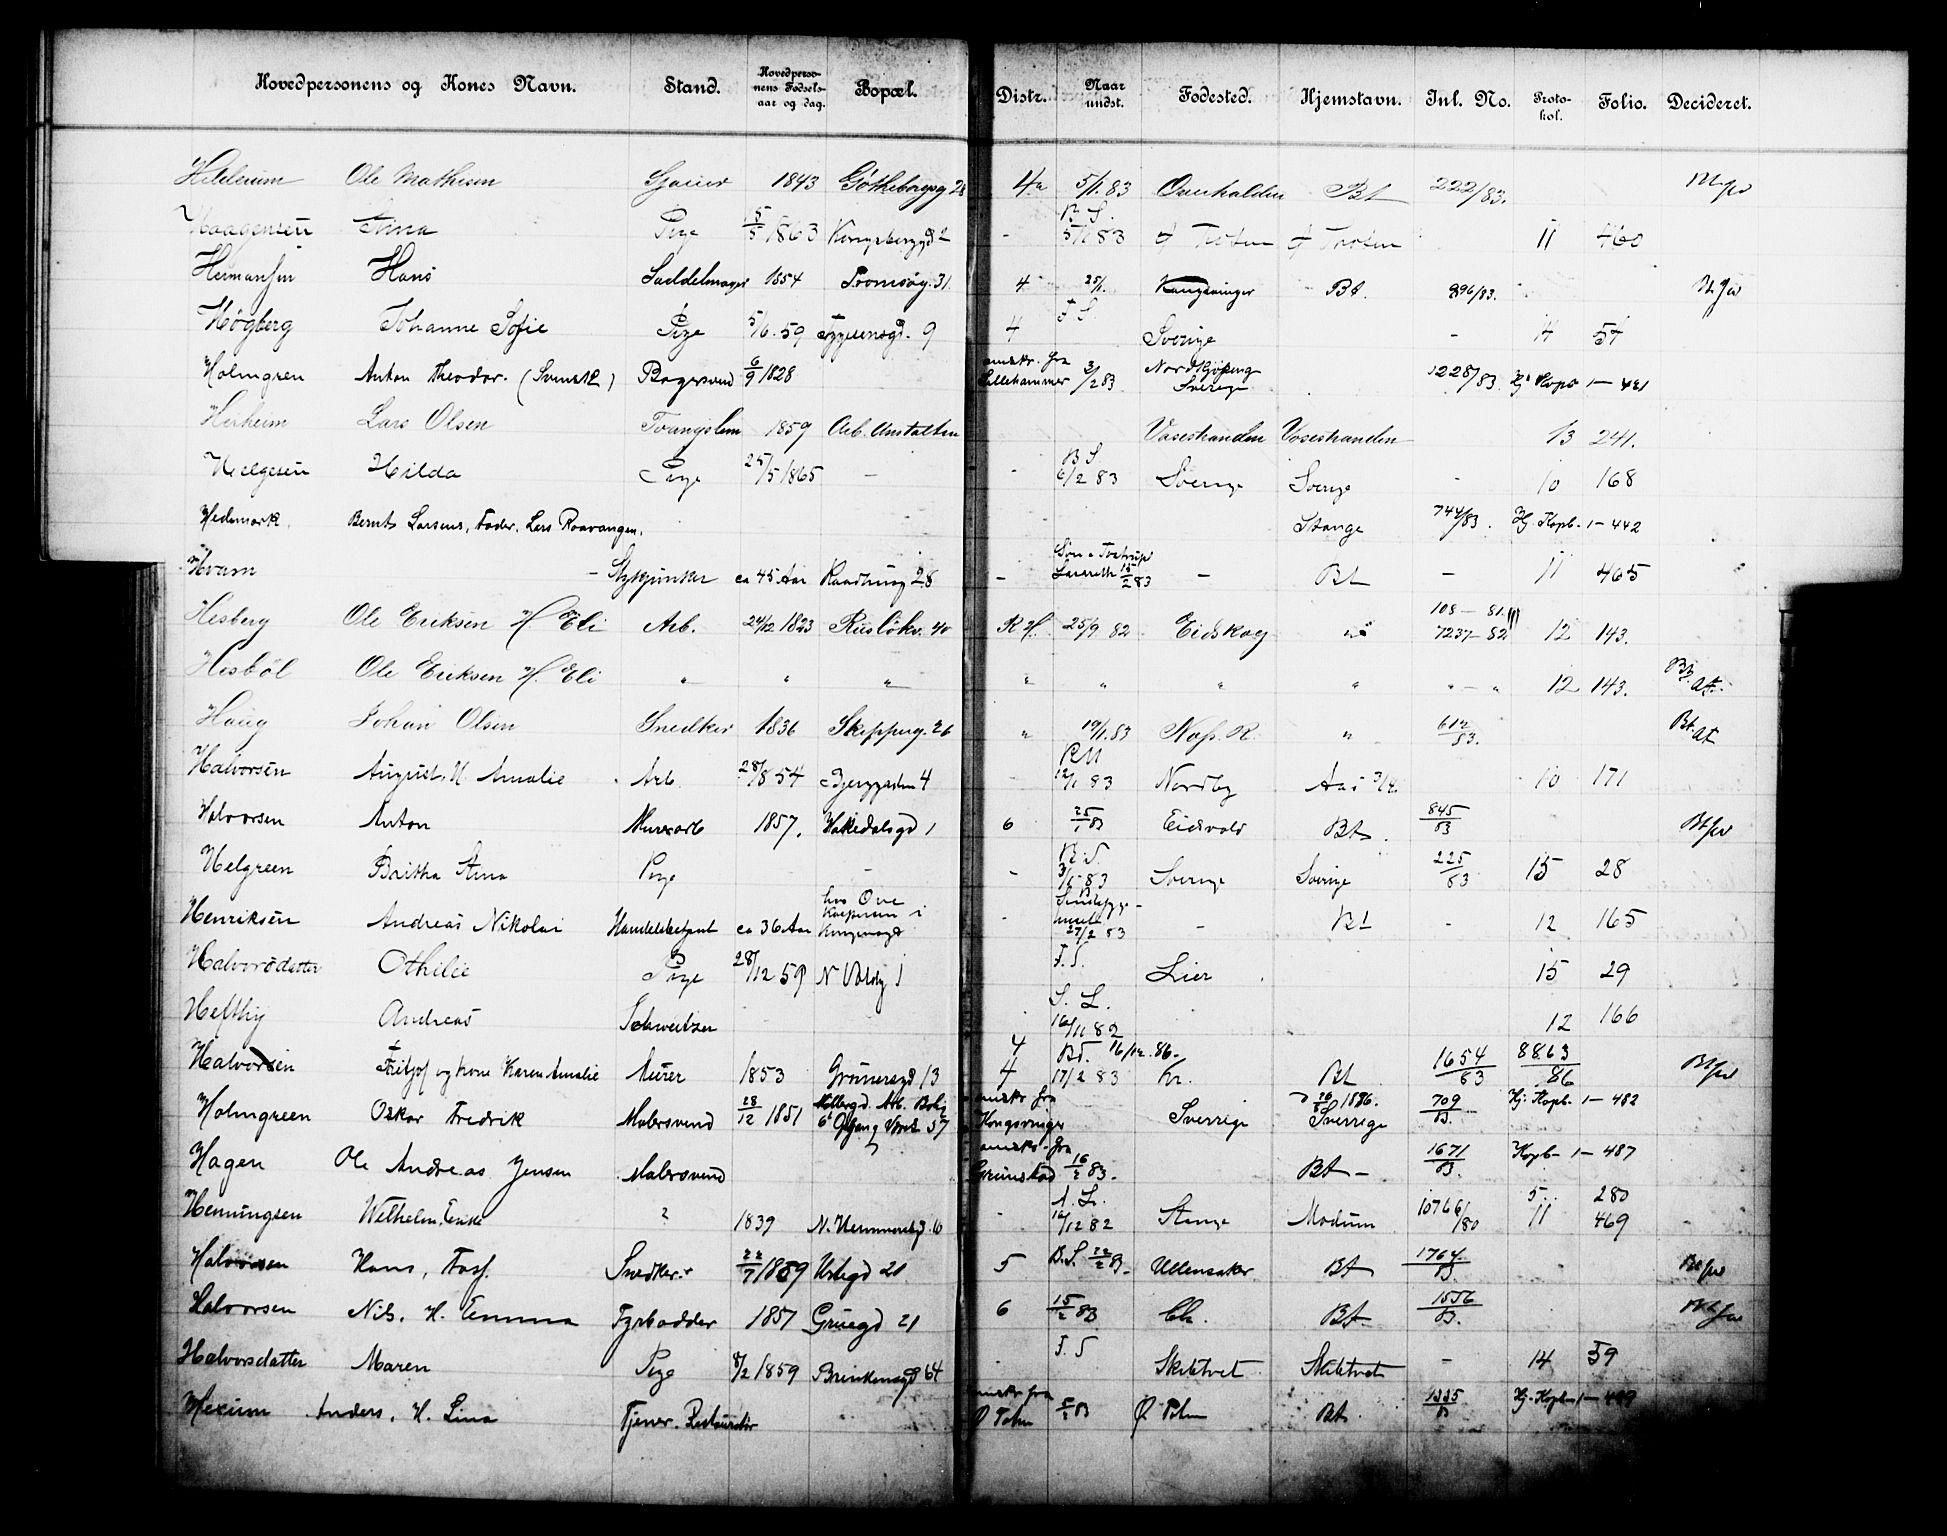 Hovedpersonens og Kones Navn. Stand. Hovedpersonens Fødselsaar og dag. Bopæl. Distr. Naar undst. Fødested. Hjemstavn. Inl. No. Protokol. Folio. Decideret.
Ole Mathisen 1843 Gøtheborgsg 28 4a 5/1.83 Overhalden Bt 222/83.
Haagensen Stina Pige 15/5 1863 Kongsbergsgd 2 - B S. 5/1 83 Ø Toten Ø Toten 11 460
Hermansen Hans Saddelmager 1854 Tromsøg. 31 4 25/1. Bt. 896/83.
Høgberg Johanne Sofie Pige 5/6.59 9 4 F S. Sverige - 14 57
Holmgren Anton Theodor. (Svensk) Bagersvend 6/9 1828 omskr. fra Lillehammer 3/2 83 Nordkjøping Sverige 1228/83. Hj. Kopb 1-421
Herheim Lars Olsen Tvangslem 1859 Arb. Anstalten Vosestranden Vosestranden 13 241.
Helgesen Hilda Pige 25/5 1865 - - B S 6/2 83 Sverige Sverige - 10 168
Hedemark. Bernt Larsens, Fader. Lars Raavangen. Stange 744/83. Hj. Kopb. 1-442
Hvam - Stykjunker ca 45 Aar Raadhusg 28 - Lazareth 15/2 83 - Bt - 11 465
Hesberg Ole Eriksen H Eli Arb. 24/12 1823 Rusløkv. 40 R H. 25/9 82 Eidskog " 108-81. 7237-82 12 143.
Hesbøl Ole Eriksen H. Eli " " " " " " " " - " 12 143. Bt. at.
Haug Johan Olsen Snedker 1836 Skipperg. 26 " 19/1.83 Næs. R. " 612/83. Bt. at
Halvorsen August, H. Amalie Arb. 28/8 54 Bjerggaden 4 RM 12/1 83 Nordby Aas 10 171
Halvorsen Anton Murarb 1857. Hakedalsgd 1 6 25/1 83 Eidsvold Bt. 845/83
Helgreen Britha Stina Pige - - - 3/1-83 Sverige Sverige 225/83 15 28
Henriksen Andreas Nikolai Handelsbetjent ca 36 Aar hos Ove Kaspersen i - 27/2 83 - Bt - 12 165
Halvorsdatter Othilie Pige 28/12 59 1 F. S. Lier. 15 29
Heftby Andreas Schweitzer - - S. L. 16/11 82 12 166
Halvorsen Fritjof og kone Karen Amalie Murer 1853 Grünersgd 13 4 4 BS. 16/12.86. 17/2 83 Kr. Bt 1654/83 8863/86
Holmgreen Oskar Fredrik Malersvend 28/12 1851 Møllergd. Arb. Bolig 6t Opgang Værel 57 omskr fra Kongsvinger Sverrige Sverrige 709/83. Hj. Kopb. 1-482
Hagen Ole Andreas Jensen Malersvend omskr. fra Grimstad 16/2 83. Bt - 1671/83. Kopb 1-487
Henningsen Wilhelm, Enke 1839 - A. L. 16/12 82 Stange Modum 10766/80 5. 280 11 469
Halvorsen Hans, Snedker. 22/7 1859 Urtegd 20 5 B. S. 22/2 83 Ullensaker Bt 1764/83.
Halvorsen Nils. H. Emma Fyrbødder 1857 Gruegd 21 6 15/2 83 Ch. Bt. 1556/83.
Halvorsdatter Maren Pige 8/2 1859 Brinkensgd 64 - F. S Skibtvet Skibtvet - 14 59
Anders, H. Lina Tjener. Restauratør omskr fra Ø Toten Ø Toten Bt 1335/83 Hj. Kopb 1-489